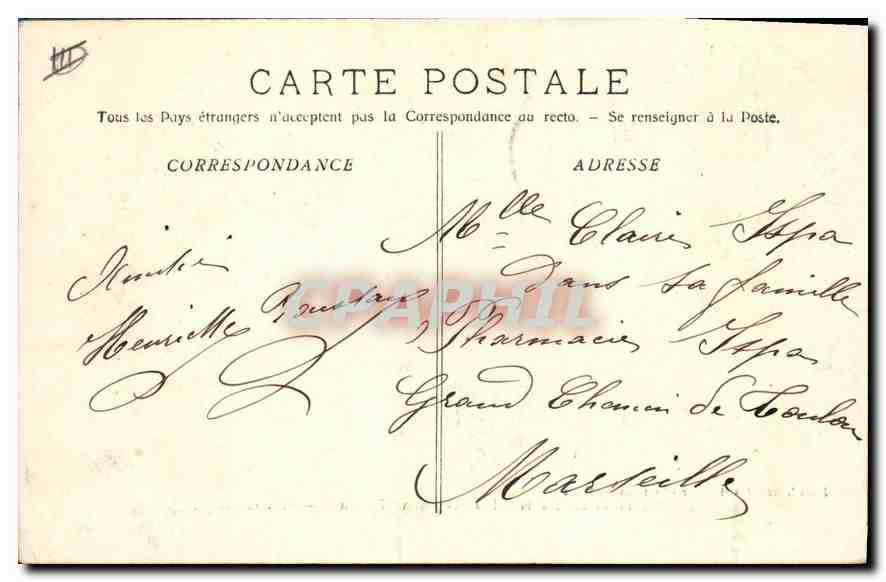 III
CARTE POSTALE
Tous les Pays étrangers n'acceptent pas la Correspondance au recto. - Se renseigner à la Poste.
CORRESPONDANCE
Amitié
Henriette Roustan
ADRESSE
Mlle Claire Ispa
dans sa famille
Pharmacie Ispa
Grand Chemin de Toulon
Marseille
CPAPHIL